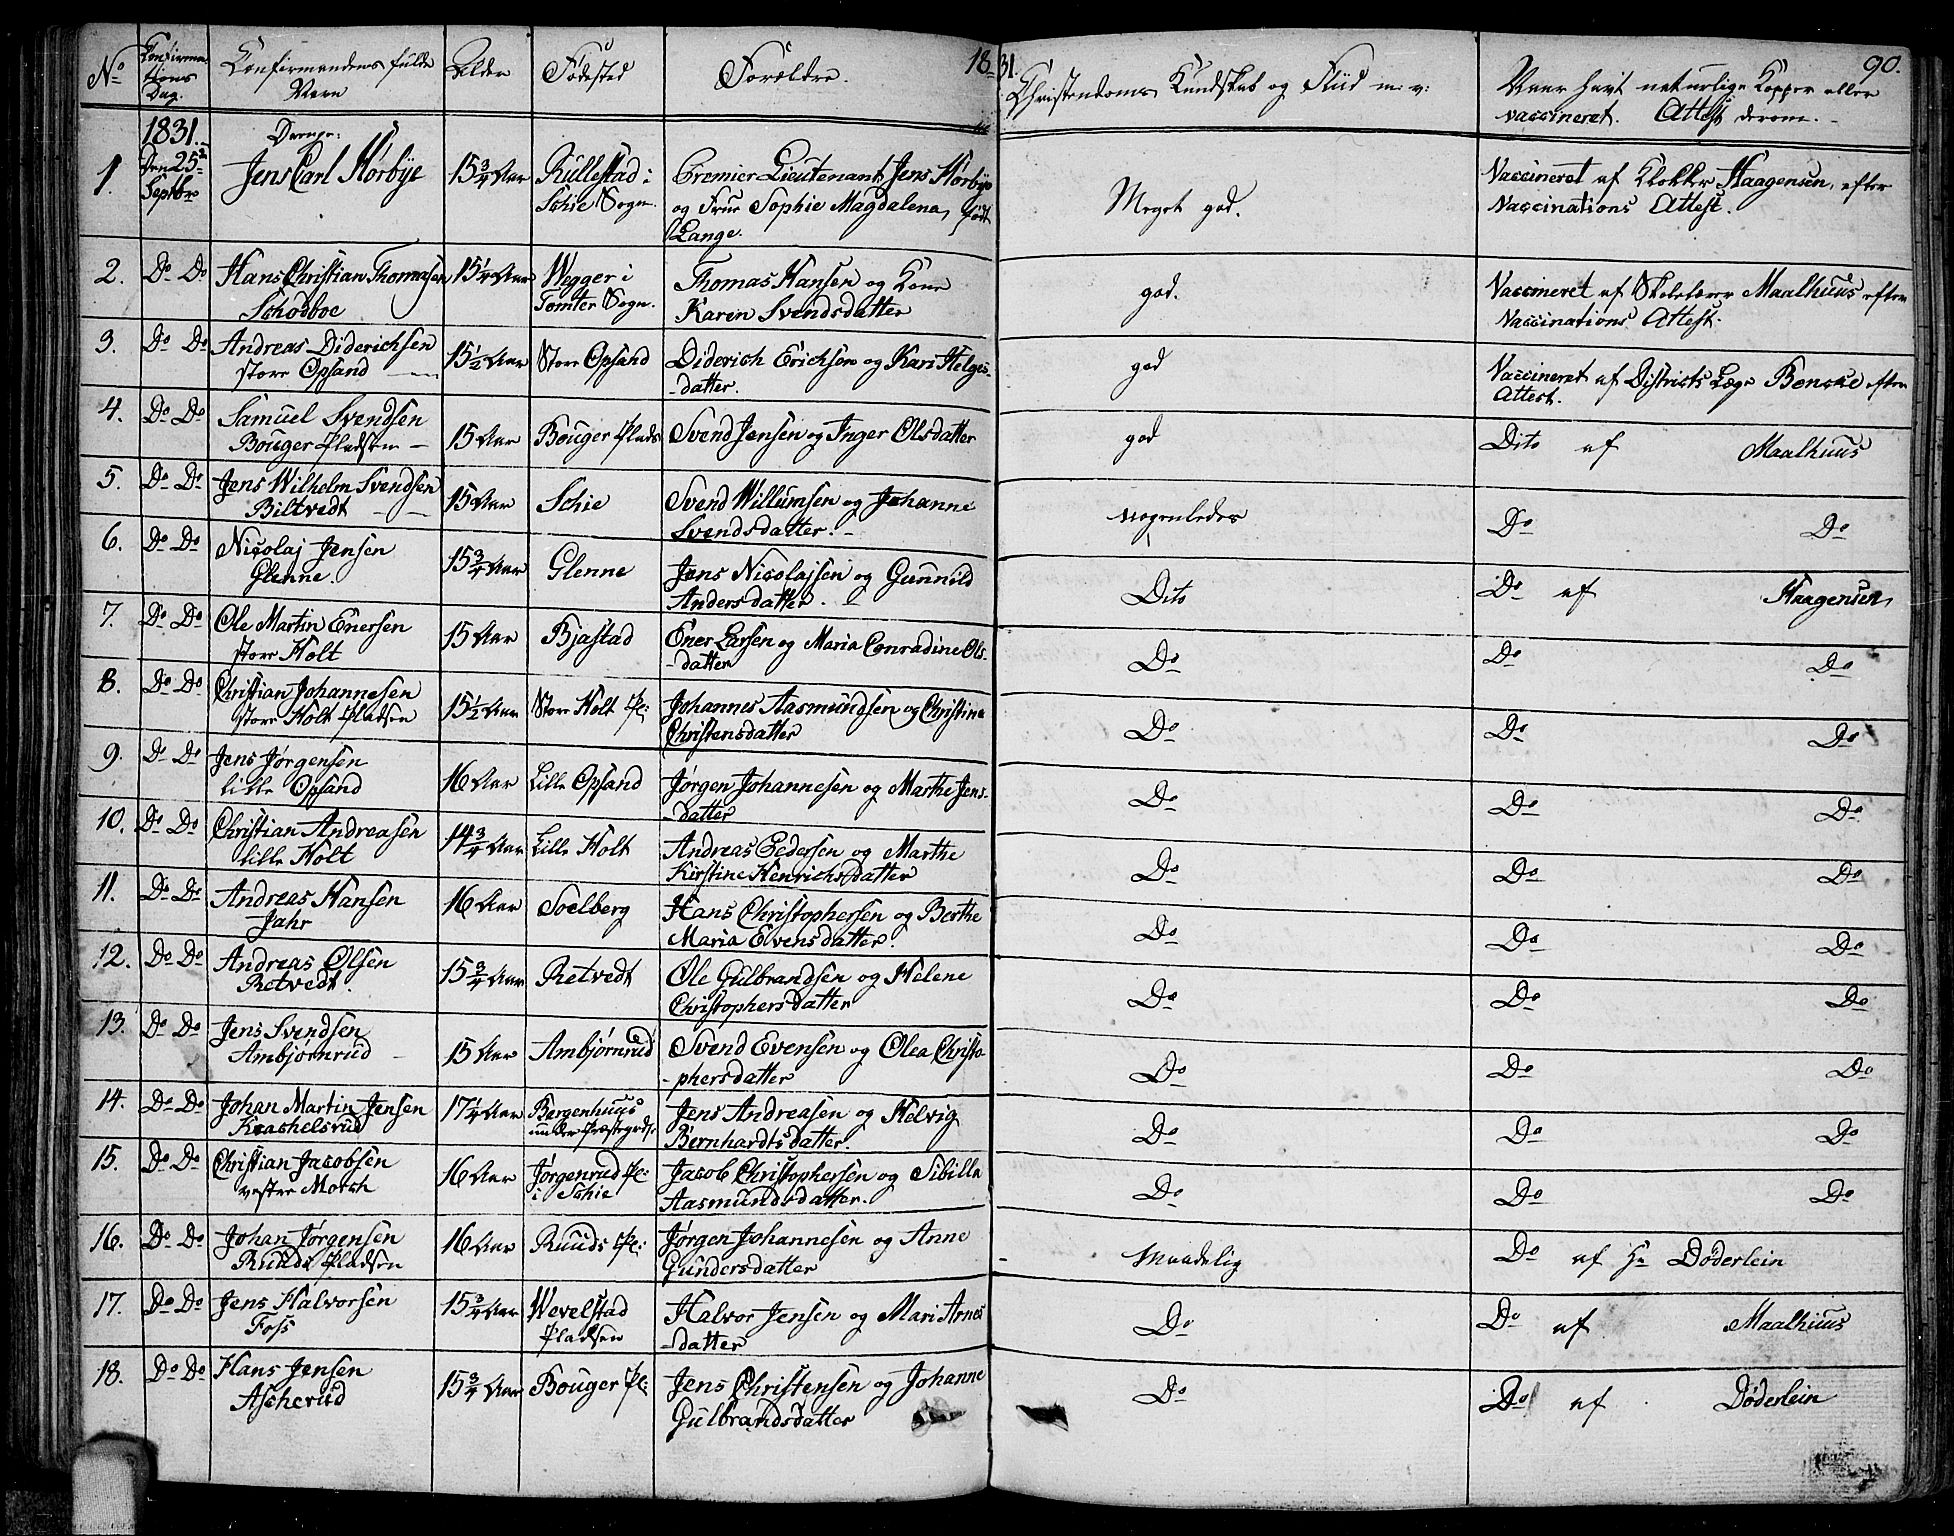 18 31.
90.
No Confirmations Dag. Confirmandens fulde Navn Alder Fødested Forældre. Christendoms Kundskab og Fliid m: v: Naar havt naturlige Kopper eller vaccineret. Attest derom. -
1831. Drenge:
1. Den 25de Septbr Jens Carl Hørbye 15 3/4 Aar Rullestad i Schie Sogn. Premier Lieutenant Jens Hørbye og Frue Sophie Magdalena, født Lange. Meget god. Vaccineret af Klokker Haagensen, efter Vaccinations Attest.
2. Do Do Hans Christian Thomasen Schodboe 15 1/4 Aar Wegger i Tomter Sogn. Thomas Hansen og Kone Karen Svendsdatter god. Vaccineret af Skolelærer Maalhuus efter Vaccinations Attest.
3. Do Do Andreas Diderichsen store Opsand 15 1/2 Aar Store Opsand Diderich Erichsen og Kari Helges-datter. god Vaccineret af Districts Læge Benske efter Attest.
4. Do Do Samuel Svendsen Bouger Pladsen - 15 Aar Bouger Plads Svend Jensen og Inger Olsdatter god Dito af Maalhuus
5. Do Do Jens Wilhelm Svendsen Biltvedt 15 Aar Schie Svend Willumsen og Johanne Svendsdatter. - nogenledes Do Do
6. Do Do Nicolaj Jensen Glenne. 15 3/4 Aar Glenne Jens Nicolajsen og Gunnild Andersdatter. - Dito Do af Haagensen
7. Do Do Ole Martin Enersen store Holt 15 Aar Bjastad Ener Larsen og Maria Conradine Ols-datter Do Do Do
8. Do Do Christian Johannesen store Holt Pladsen 15 1/2 Aar Store Holt Pl: Johannes Aasmundsen og Christine Christensdatter Do Do Do
9. Do Do Jens Jørgensen lille Opsand 16 Aar Lille Opsand Jørgen Johannesen og Marthe Jens-datter Do Do Do
10. Do Do Christian Andreasen lille Holt 14 3/4 Aar Lille Holt Andreas Pedersen og Marthe Kirstine Henrichsdatter Do Do Do
11. Do Do Andreas Hansen Jahr 16 Aar Soelberg Hans Christophersen og Berthe Maria Evensdatter. Do Do Do
12. Do Do Andreas Olsen Retvedt. 15 3/4 Aar Retvedt Ole Gulbrandsen og Helene Christophersdatter Do Do Do
13. Do Do Jens Svendsen Ambjørnrud 15 Aar Ambjørnrud Svend Evensen og Olea Christo-phersdatter Do Do Do
14. Do Do Johan Martin Jensen Krachelsrud 17 1/4 Aar Bergenhuus under Præstegrds: Jens Andreasen og Helvig Bernhardtsdatter. Do Do Do
15. Do Do Christian Jacobsen vestre Morch 16 Aar Jørgenrud Pl: i Schie Jacob Christophersen og Sibilla Aasmundsdatter. Do Do Do
16. Do Do Johan Jørgensen Ruuds Pladsen 16 Aar Ruuds Pl: Jørgen Johannesen og Anne Gundersdatter Maadelig Do af Hr Døderlein
17. Do Do Jens Halvorsen Foss 15 3/4 Aar Wevelstad Pladsen Halvor Jensen og Mari Arnes-datter Do Do af Maalhuus
18. Do Do Hans Jensen Ascherud 15 3/4 Aar Bouger Pl: Jens Christensen og Johanne Gulbrandsdatter Do Do af Døderlein